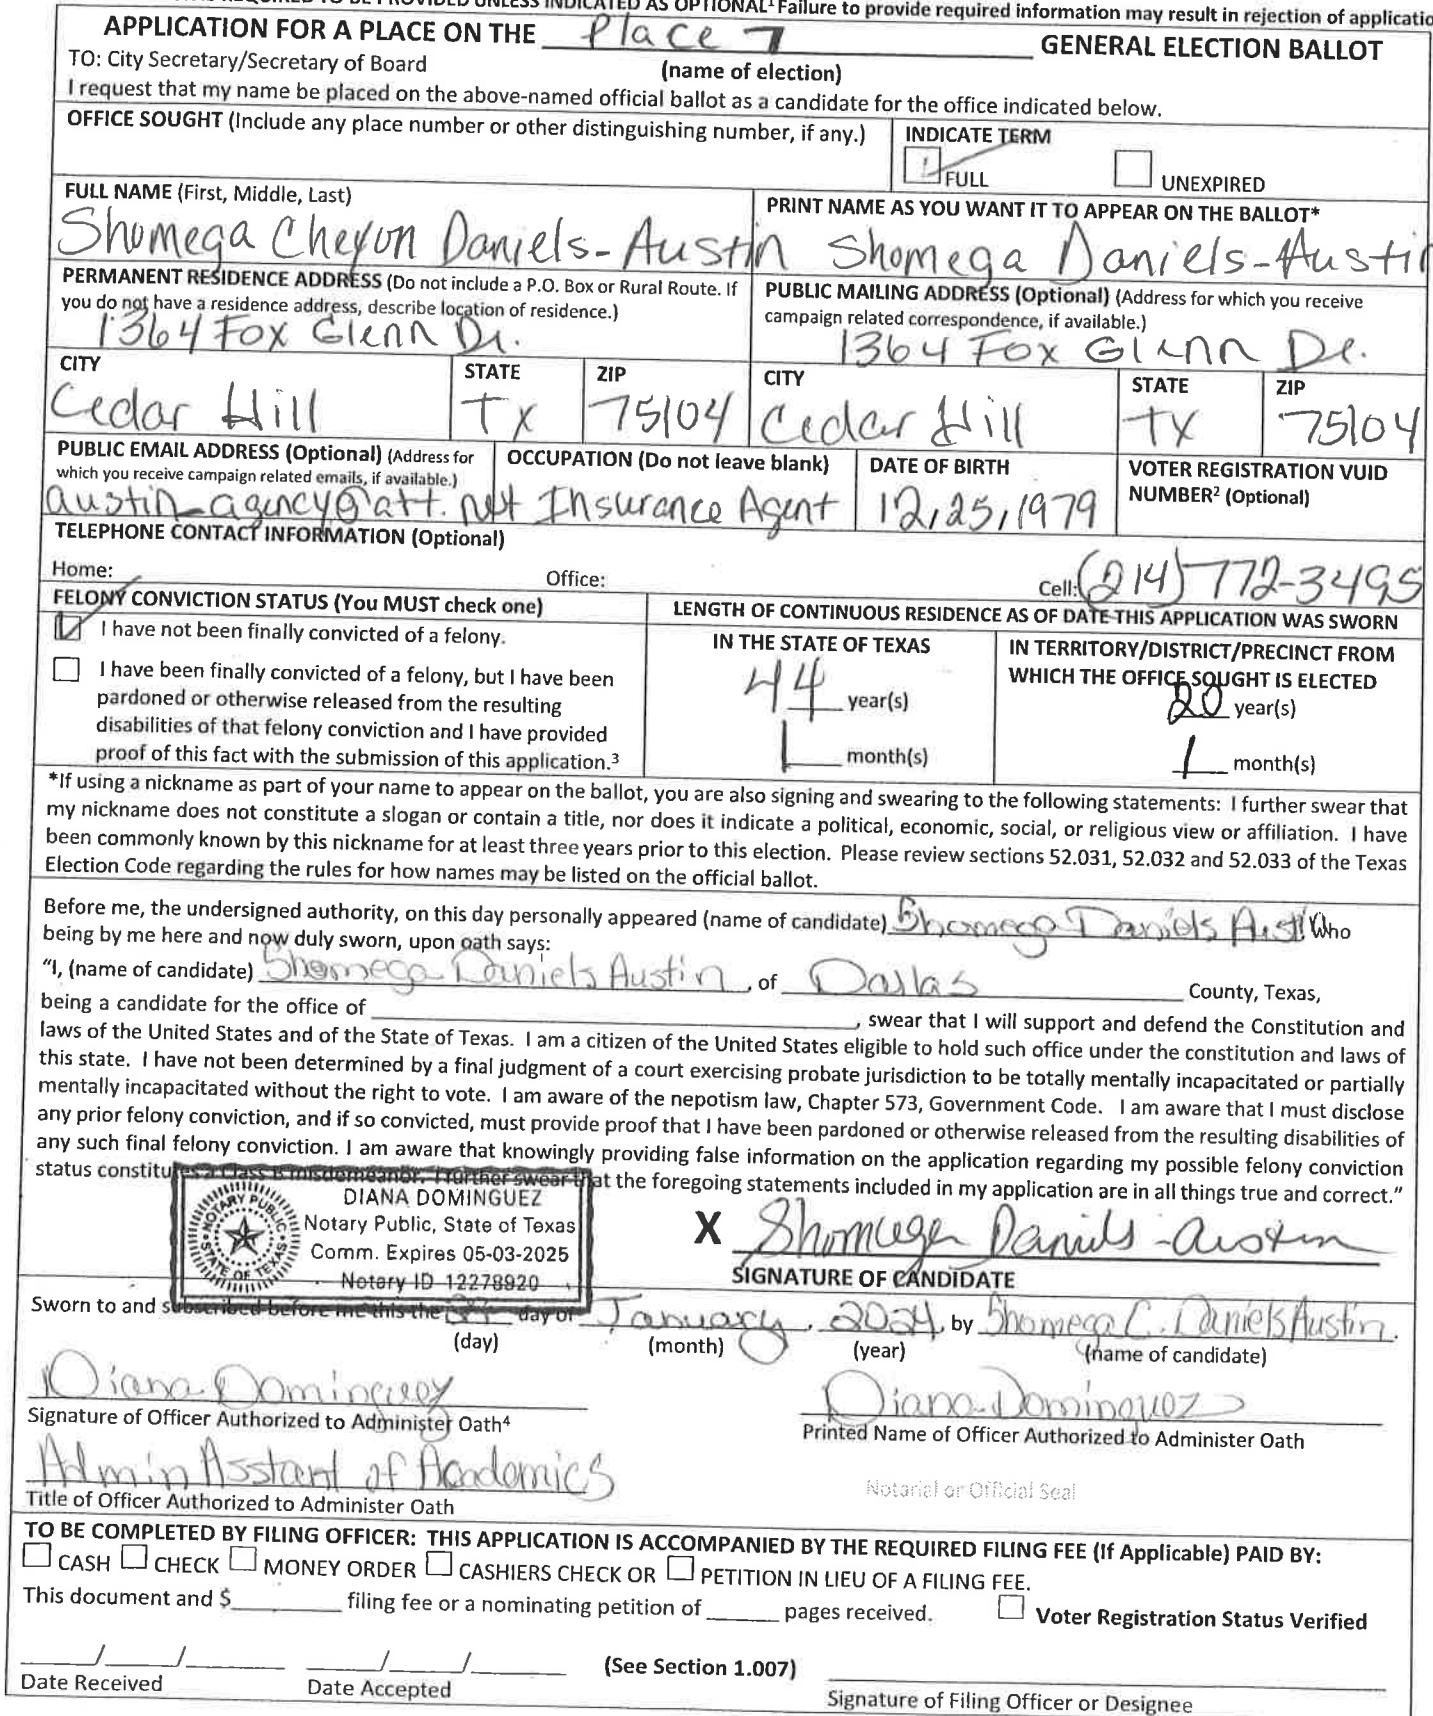 AS OPTIONAL¹ Failure to provide required information may result in rejection of applicatio
APPLICATION FOR A PLACE ON THE Place 7 GENERAL ELECTION BALLOT
(name of election)
TO: City Secretary/Secretary of Board
I request that my name be placed on the above-named official ballot as a candidate for the office indicated below.
OFFICE SOUGHT (Include any place number or other distinguishing number, if any.)
INDICATE TERM
FULL UNEXPIRED
FULL NAME (First, Middle, Last)
Shomega Cheyon Daniels-Austin
PRINT NAME AS YOU WANT IT TO APPEAR ON THE BALLOT*
Shomega Daniels-Austin
PERMANENT RESIDENCE ADDRESS (Do not include a P.O. Box or Rural Route. If
you do not have a residence address, describe location of residence.)
1364 Fox Glenn Dr.
PUBLIC MAILING ADDRESS (Optional) (Address for which you receive
campaign related correspondence, if available.)
1364 Fox Glenn Dr.
CITY STATE ZIP CITY STATE ZIP
Cedar Hill TX 75104 Cedar Hill TX 75104
PUBLIC EMAIL ADDRESS (Optional) (Address for
which you receive campaign related emails, if available.)
austin_agency@att.net
OCCUPATION (Do not leave blank)
Insurance Agent
DATE OF BIRTH
12,25,1979
VOTER REGISTRATION VUID
NUMBER² (Optional)
TELEPHONE CONTACT INFORMATION (Optional)
Home: Office: Cell: (214) 772-3495
FELONY CONVICTION STATUS (You MUST check one)
I have not been finally convicted of a felony.
I have been finally convicted of a felony, but I have been
pardoned or otherwise released from the resulting
disabilities of that felony conviction and I have provided
proof of this fact with the submission of this application.³
LENGTH OF CONTINUOUS RESIDENCE AS OF DATE THIS APPLICATION WAS SWORN
IN THE STATE OF TEXAS
44 year(s)
1 month(s)
IN TERRITORY/DISTRICT/PRECINCT FROM
WHICH THE OFFICE SOUGHT IS ELECTED
20 year(s)
1 month(s)
*If using a nickname as part of your name to appear on the ballot, you are also signing and swearing to the following statements: I further swear that
my nickname does not constitute a slogan or contain a title, nor does it indicate a political, economic, social, or religious view or affiliation. I have
been commonly known by this nickname for at least three years prior to this election. Please review sections 52.031, 52.032 and 52.033 of the Texas
Election Code regarding the rules for how names may be listed on the official ballot.
Before me, the undersigned authority, on this day personally appeared (name of candidate) Shomega Daniels Austi Who
being by me here and now duly sworn, upon oath says:
"I, (name of candidate) Shomega Daniels Austin, of Dallas County, Texas,
being a candidate for the office of , swear that I will support and defend the Constitution and
laws of the United States and of the State of Texas. I am a citizen of the United States eligible to hold such office under the constitution and laws of
this state. I have not been determined by a final judgment of a court exercising probate jurisdiction to be totally mentally incapacitated or partially
mentally incapacitated without the right to vote. I am aware of the nepotism law, Chapter 573, Government Code. I am aware that I must disclose
any prior felony conviction, and if so convicted, must provide proof that I have been pardoned or otherwise released from the resulting disabilities of
any such final felony conviction. I am aware that knowingly providing false information on the application regarding my possible felony conviction
status constitutes a Class B misdemeanor. I further swear that the foregoing statements included in my application are in all things true and correct."
NOTARY PUBLIC STATE OF TEXAS
DIANA DOMINGUEZ
Notary Public, State of Texas
Comm. Expires 05-03-2025
Notary ID 12278920
X Shomega Daniels-Austin
SIGNATURE OF CANDIDATE
Sworn to and subscribed before me this the day of January, 2024, by Shomega C. Daniels Austin.
(day) (month) (year) (name of candidate)
Diana Dominguez Diana Dominguez
Signature of Officer Authorized to Administer Oath⁴ Printed Name of Officer Authorized to Administer Oath
Admin Asstant of Academics
Title of Officer Authorized to Administer Oath
Notarial or Official Seal
TO BE COMPLETED BY FILING OFFICER: THIS APPLICATION IS ACCOMPANIED BY THE REQUIRED FILING FEE (If Applicable) PAID BY:
CASH CHECK MONEY ORDER CASHIERS CHECK OR PETITION IN LIEU OF A FILING FEE.
This document and $ filing fee or a nominating petition of pages received. Voter Registration Status Verified
/ / / / (See Section 1.007)
Date Received Date Accepted Signature of Filing Officer or Designee